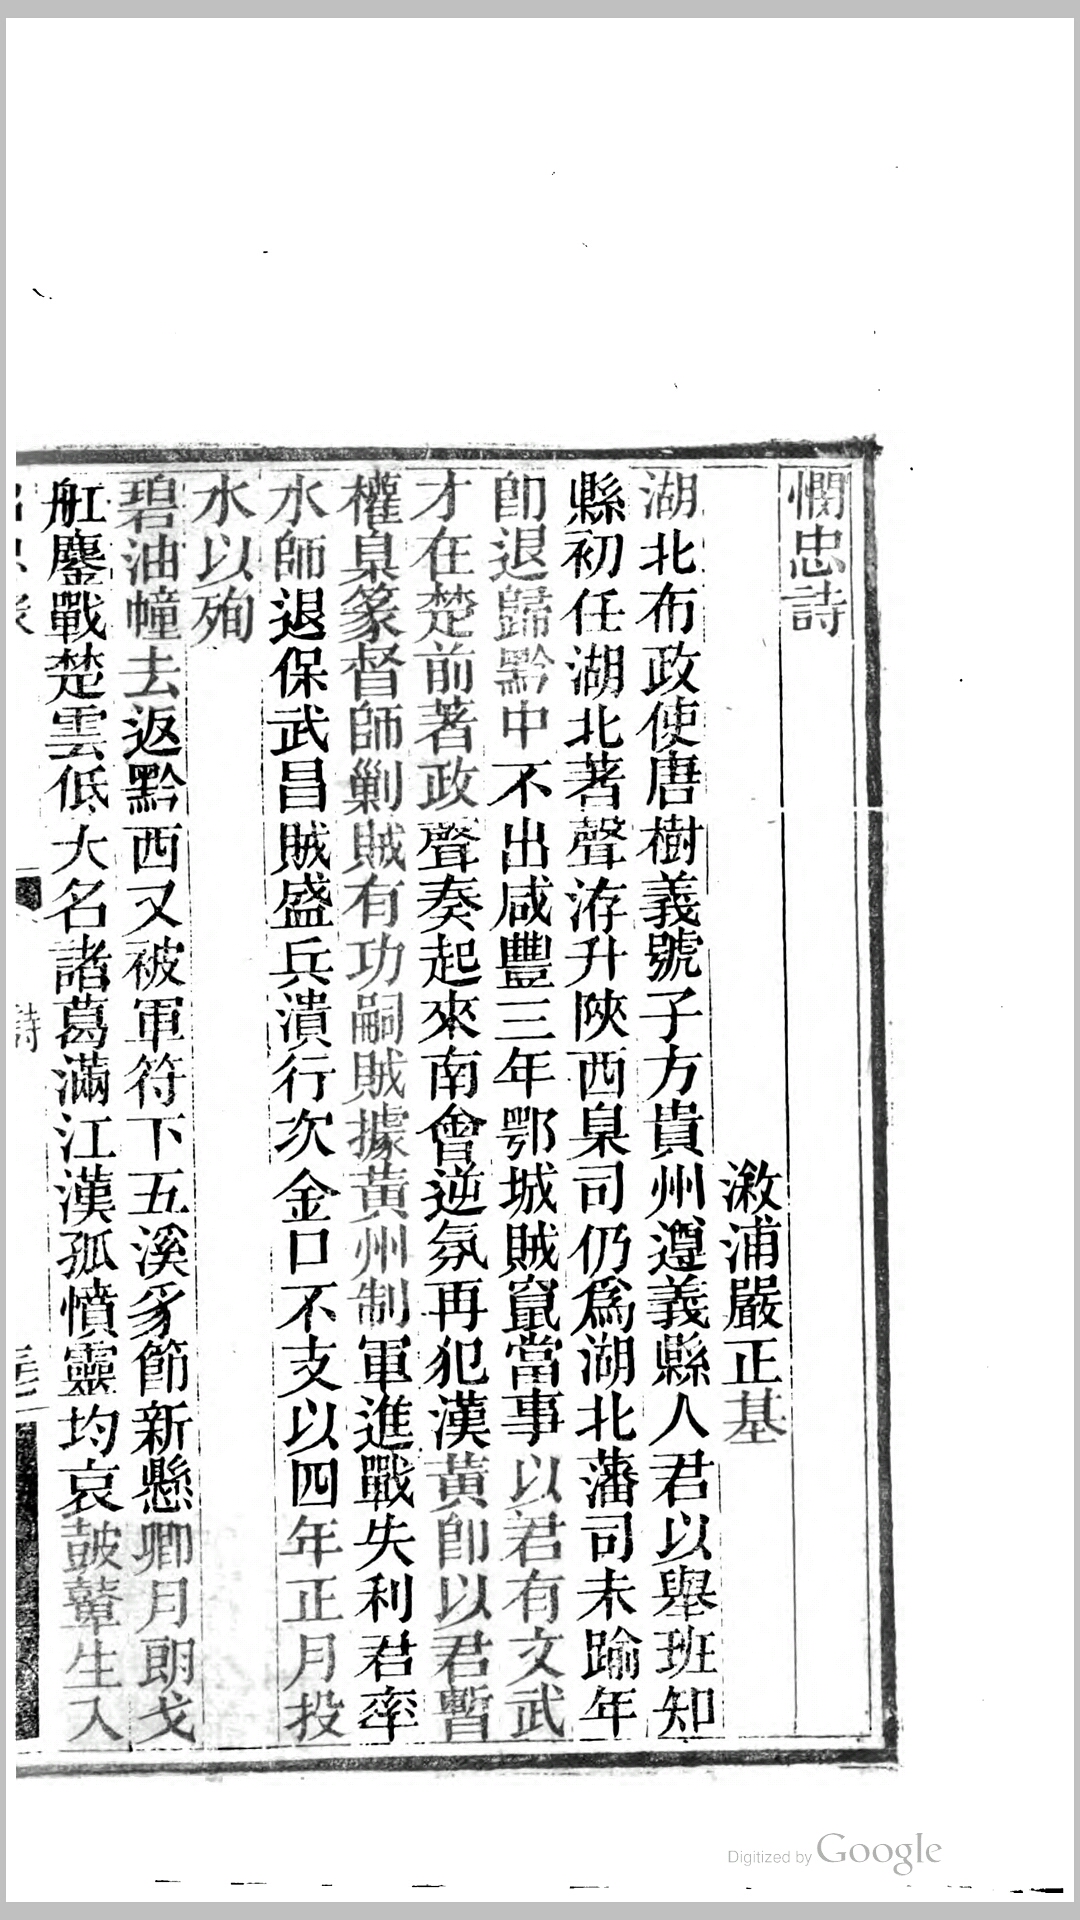 憫忠詩
漵浦嚴正基
湖北布政使唐樹義號子方貴州遵義縣人君以舉班知
縣初任湖北著聲洊升陝西臬司仍爲湖北藩司未踰年
卽退歸黔中不出咸豐三年鄂城賊竄當事以君有文武
才在楚前著政聲奏起來南會逆氛再犯漢黃卽以君暫
權臬篆督師剿賊有功嗣賊據黃州制軍進戰失利君率
水師退保武昌賊盛兵潰行次金口不支以四年正月投
水以殉
碧油幢去返黔西又被軍符下五溪豸節新懸卿月朗戈
舡鏖戰楚雲低大名諸葛滿江漢孤憤靈均哀鼓鼙生入
詩
Digitized by Google